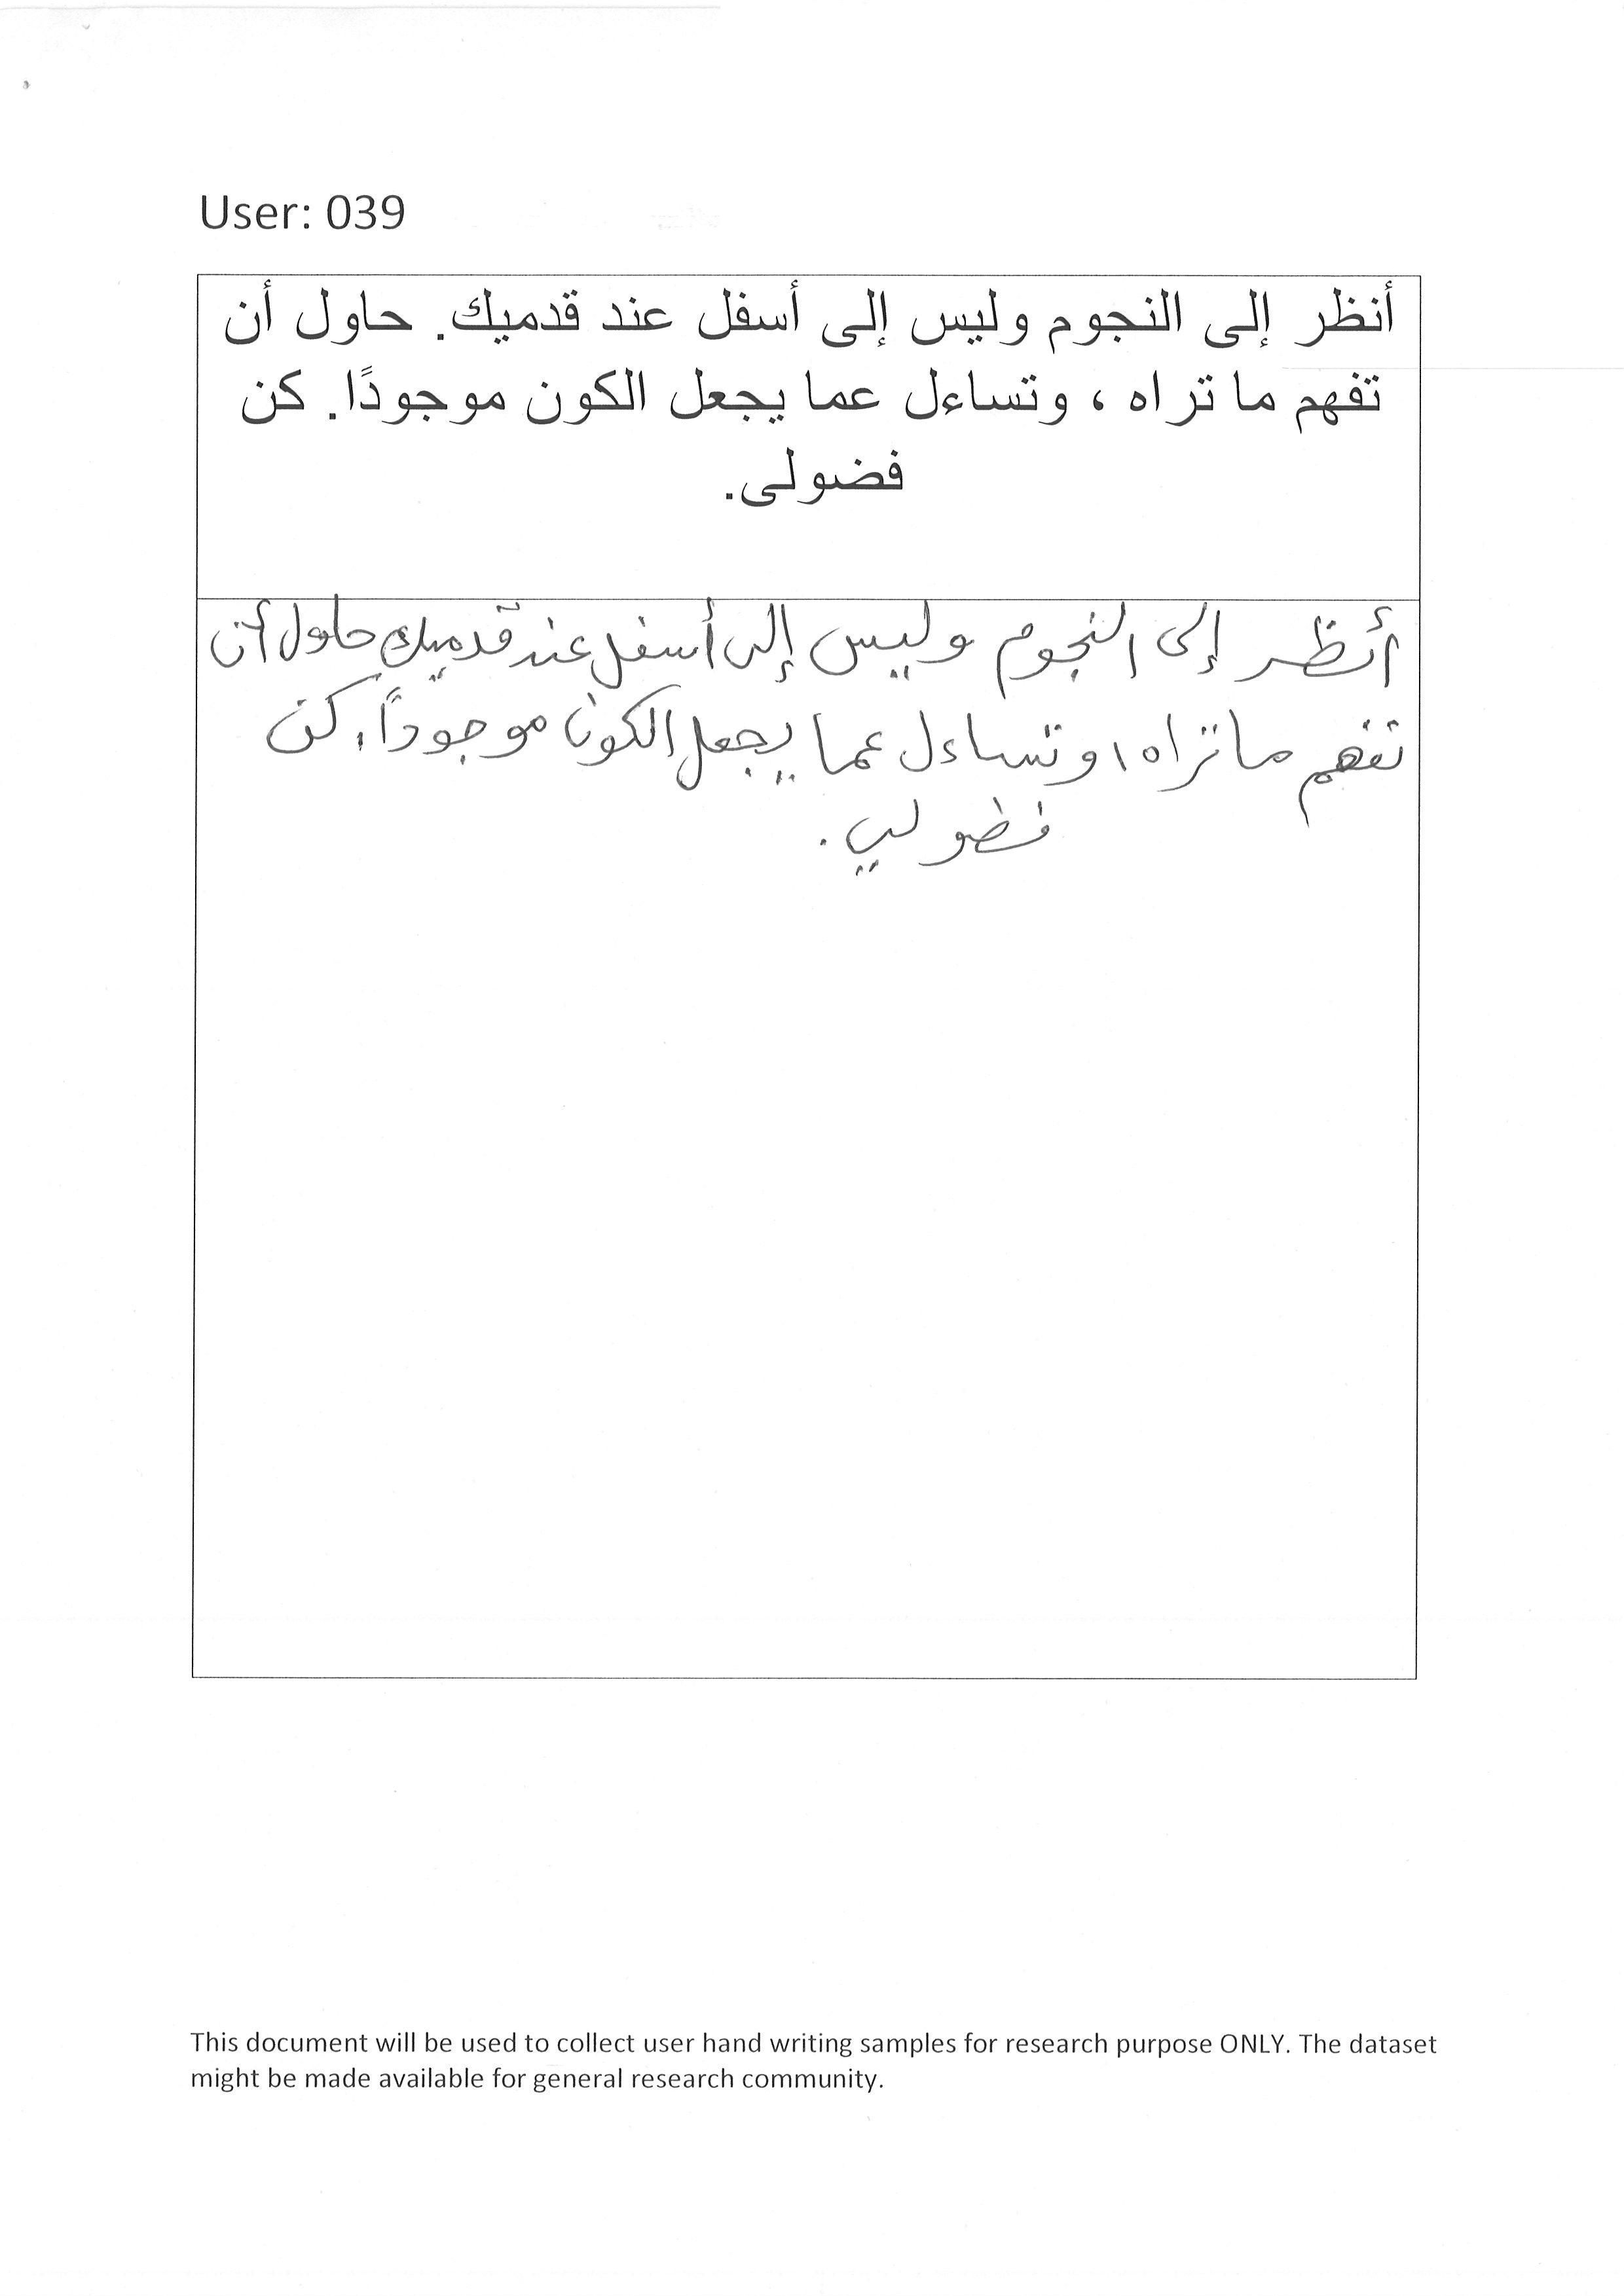 User: 039
أنظر إلى النجوم وليس إلى أسفل عند قدميك. حاول أن
تفهم ما تراه ، وتساءل عما يجعل الكون موجودًا. كن
فضولى.
أنظر إلى النجوم وليس إلى أسفل عند قدميك حاول أن
تفهم ما تراه، وتساءل عما يجعل الكون موجوداً. كن
فظولي.
This document will be used to collect user hand writing samples for research purpose ONLY. The dataset
might be made available for general research community.